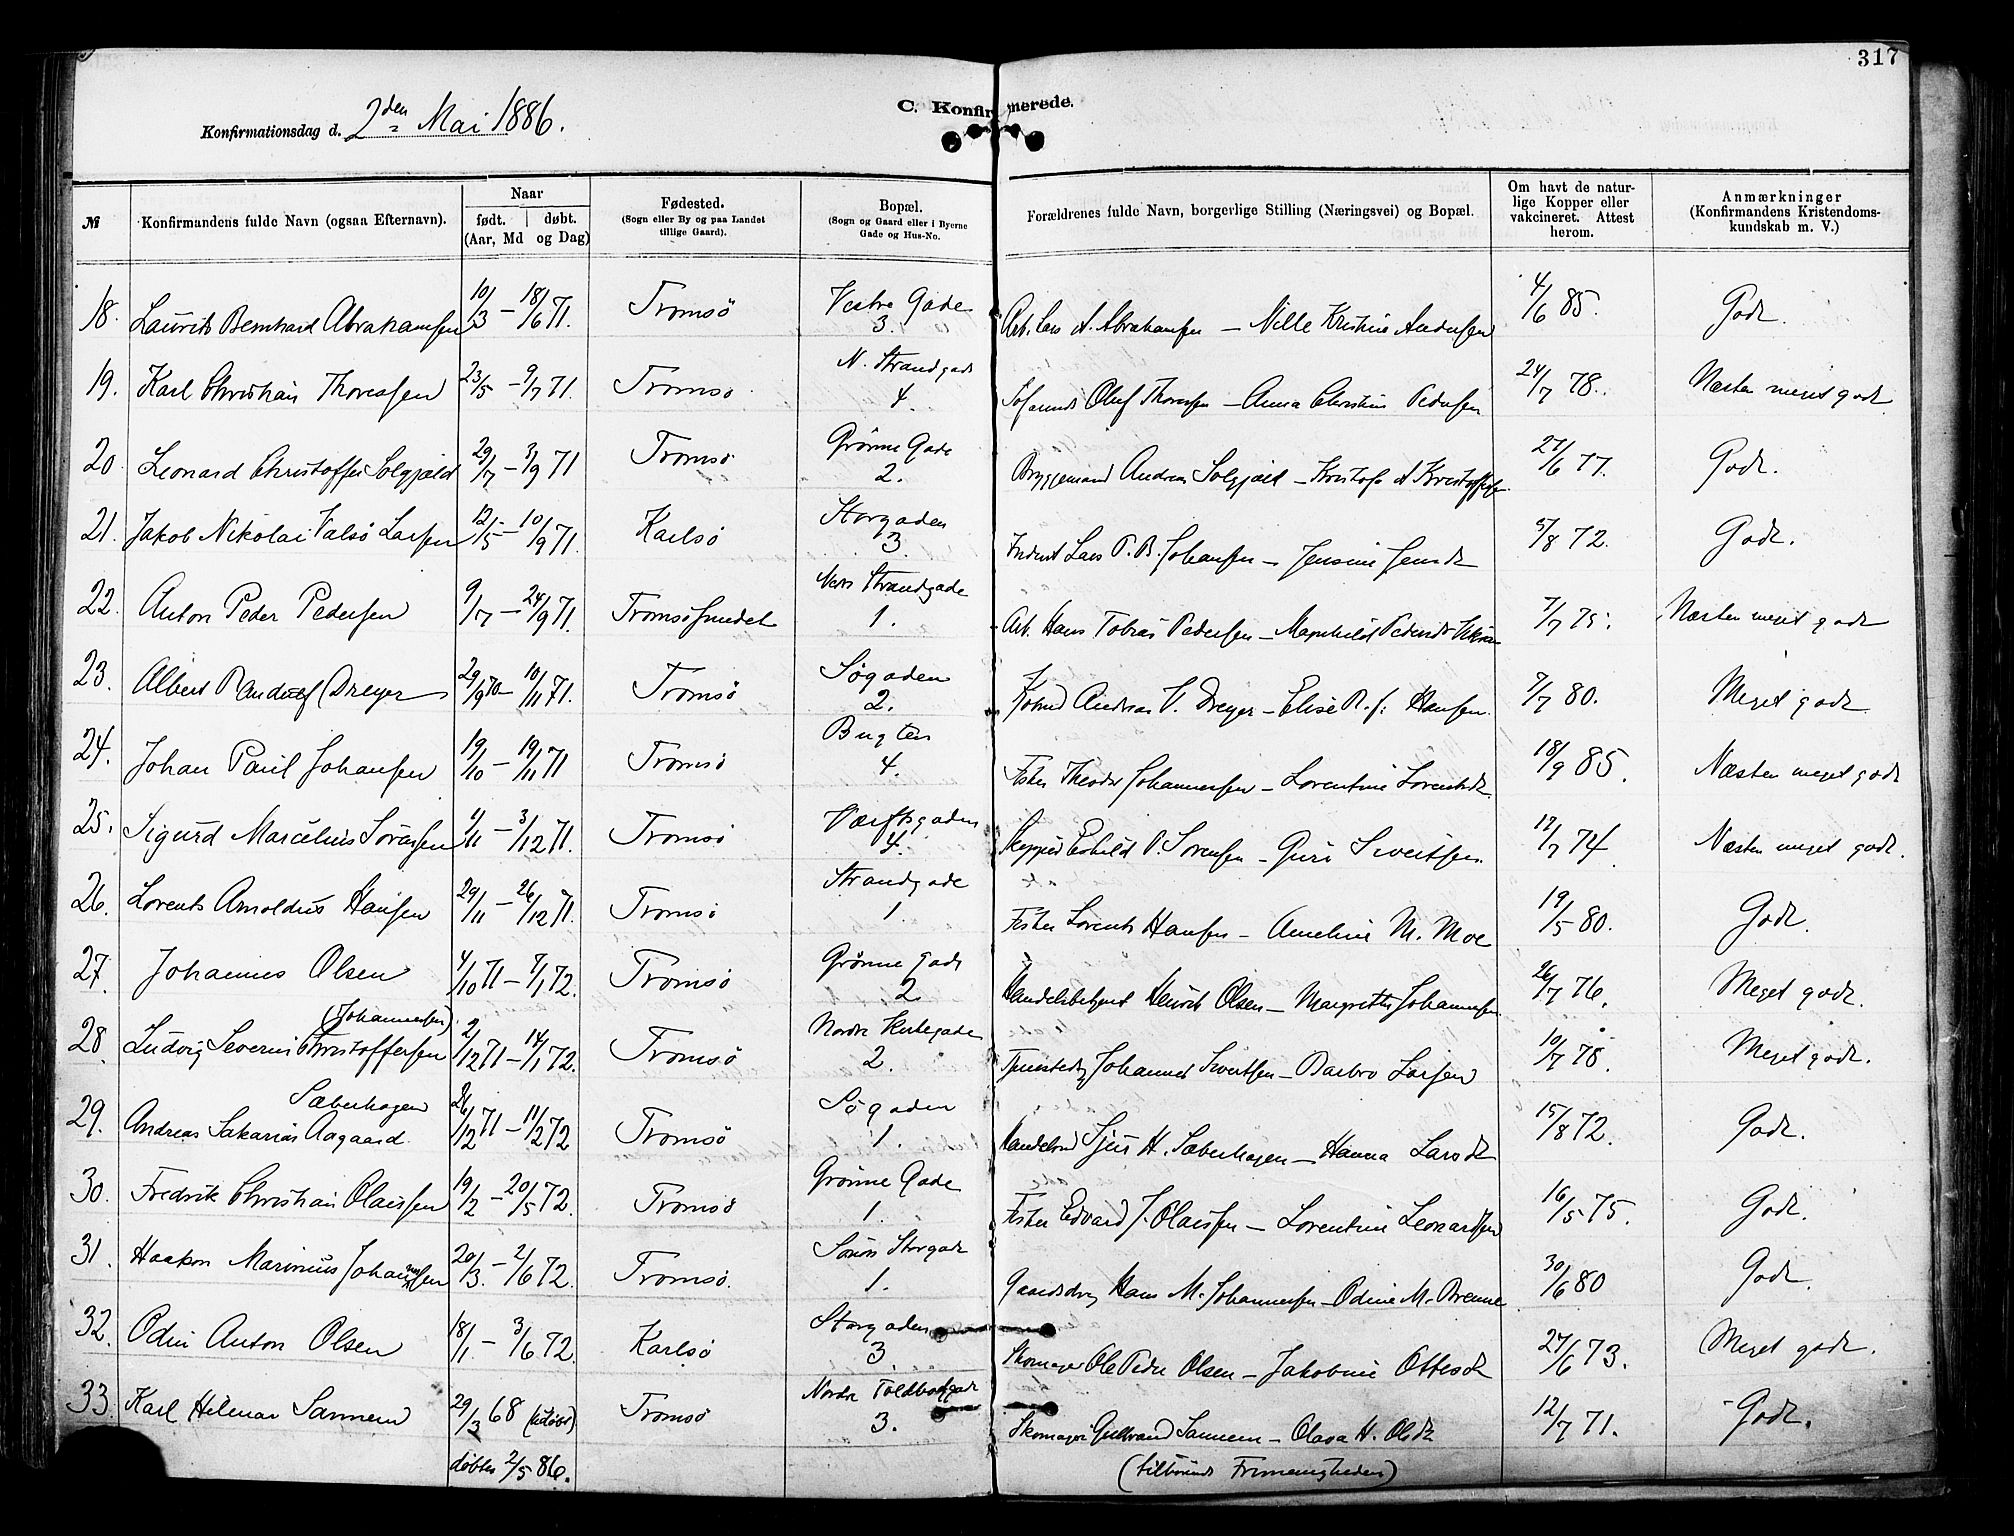 317
C. Konfirmerede.
Konfirmationsdag d. 2den Mai 1886.
№
Konfirmandens fulde Navn (ogsaa Efternavn).
Naar
født. døbt.
(Aar, Md og Dag)
Fødested.
(Sogn eller By og paa Landet
tillige Gaard).
Bopæl.
(Sogn og Gaard eller i Byerne
Gade og Hus-No.
Forældrenes fulde Navn, borgerlige Stilling (Næringsvei) og Bopæl.
Om havt de natur-
lige Kopper eller
vakcineret. Attest
herom.
Anmærkninger
(Konfirmandens Kristendoms-
kundskab m. V.)
18. Laurits Bernhard Abrahamsen 10/3 – 18/6 71. Tromsö Vestre Gade 3. Arb. Lars A. Abrahamsen – Nille Kristine Andersen 4/6 85. Godt.
19. Karl Christian Thoresen 23/5 – 9/7 71. Tromsö N. Strandgade 4. Oluf Thoresen – Anna Christine Pedersen 24/7 78. Næsten meget godt
20 Leonard Christoffer Solgjeld 29/7 – 3/9 71 Tromsö Grönne Gade 2. Bryggemand Andreas Solgjeld – A Kristoffersen 27/6 77. Godt.
21. Jakob Nikolai Valsö Larsen 12/5 – 10/9 71. Karlsö Storgaden 3. Lars P. B. Johansen – Jensine Jensdt 5/8 72. Godt.
22. Anton Peder Pedersen 9/7 – 24/9 71. Tromsösundet Strandgade 1. Arb. Hans Tobias Pedersen – Magnhild Pedersdt 7/7 75. Næsten meget godt
23. Albert Randulf Dreyer 29/9 70 – 10/11 71. Tromsö Søgaden 2. Andreas V. Dreyer – Elise R. f. Hansen. 7/7 80. Meget godt
24. Johan Paul Johansen 19/10 – 19/11 71 Tromsö Bugten 4. Fisker Theodor Johannessen – Lorentine Lorentsdt. 18/9 85. Næsten meget godt
25. Sigurd Marcelius Sörensen /11 – 3/12 71. Tromsö Værftsgaden 4. Skipper Eskild P. Sorensen – Guri Sivertsen. 17/7 74. Næsten meget godt.
26. Lorents Arnoldus Hansen 29/11 – 26/12 71. Tromsö Strandgade 1. Fisker Lorents Hansen – Ameline M. Moe 19/5 80. Godt.
27. Johannes Olsen 4/10 71 – 7/1 72. Tromsö Grönne Gade 2 Handelsbetjent Henrik Olsen – Margrethe Johannesen 26/7 76. Meget godt.
(Johannessen)
28 Ludvig Severin Christoffersen 2/12 71 – 14/1 72. Tromsö Nordre Kirkegade 2. Johannes Sivertsen – Barbro Larsen 10/7 78. Meget godt.
Sæberhagen
29. Andreas Sakarias Aagaard 26/12 71 – 11/2 72 Tromsö Søgaden 1. Sjur H. Sæberhagen – Hanna Larsdt 15/8 72. Godt.
30. Fredrik Christian Olaissen 19/2 – 20/5 72. Tromsö Grönne Gade 1. Fisker Edvard J. Olaissen – Lorentine Leonardsen 16/5 75. Godt.
31. Haakon Marinius Johannessen 20/3. – 2/6 72. Tromsö. Söndre Storgade 1. Gaardsdreng Hans M. Johannessen – Odine M. Brenne 30/6 80 Godt.
32. Odin Anton Olsen 18/1. – 3/6 72. Karlsö Storgaden 3 Skomager Ole Peder Olsen – Jakobine Ottesdt 27/6 73. Meget godt.
33. Karl Hilmar Sannem 29/3 68 Tromsö Nordre Toldbodgade 3. Skomager Gulbrand Sannem – Olava H. Olsdt 12/7 71. Godt.
døbtes 2/5 86. (tilhörende Frimenigheden)